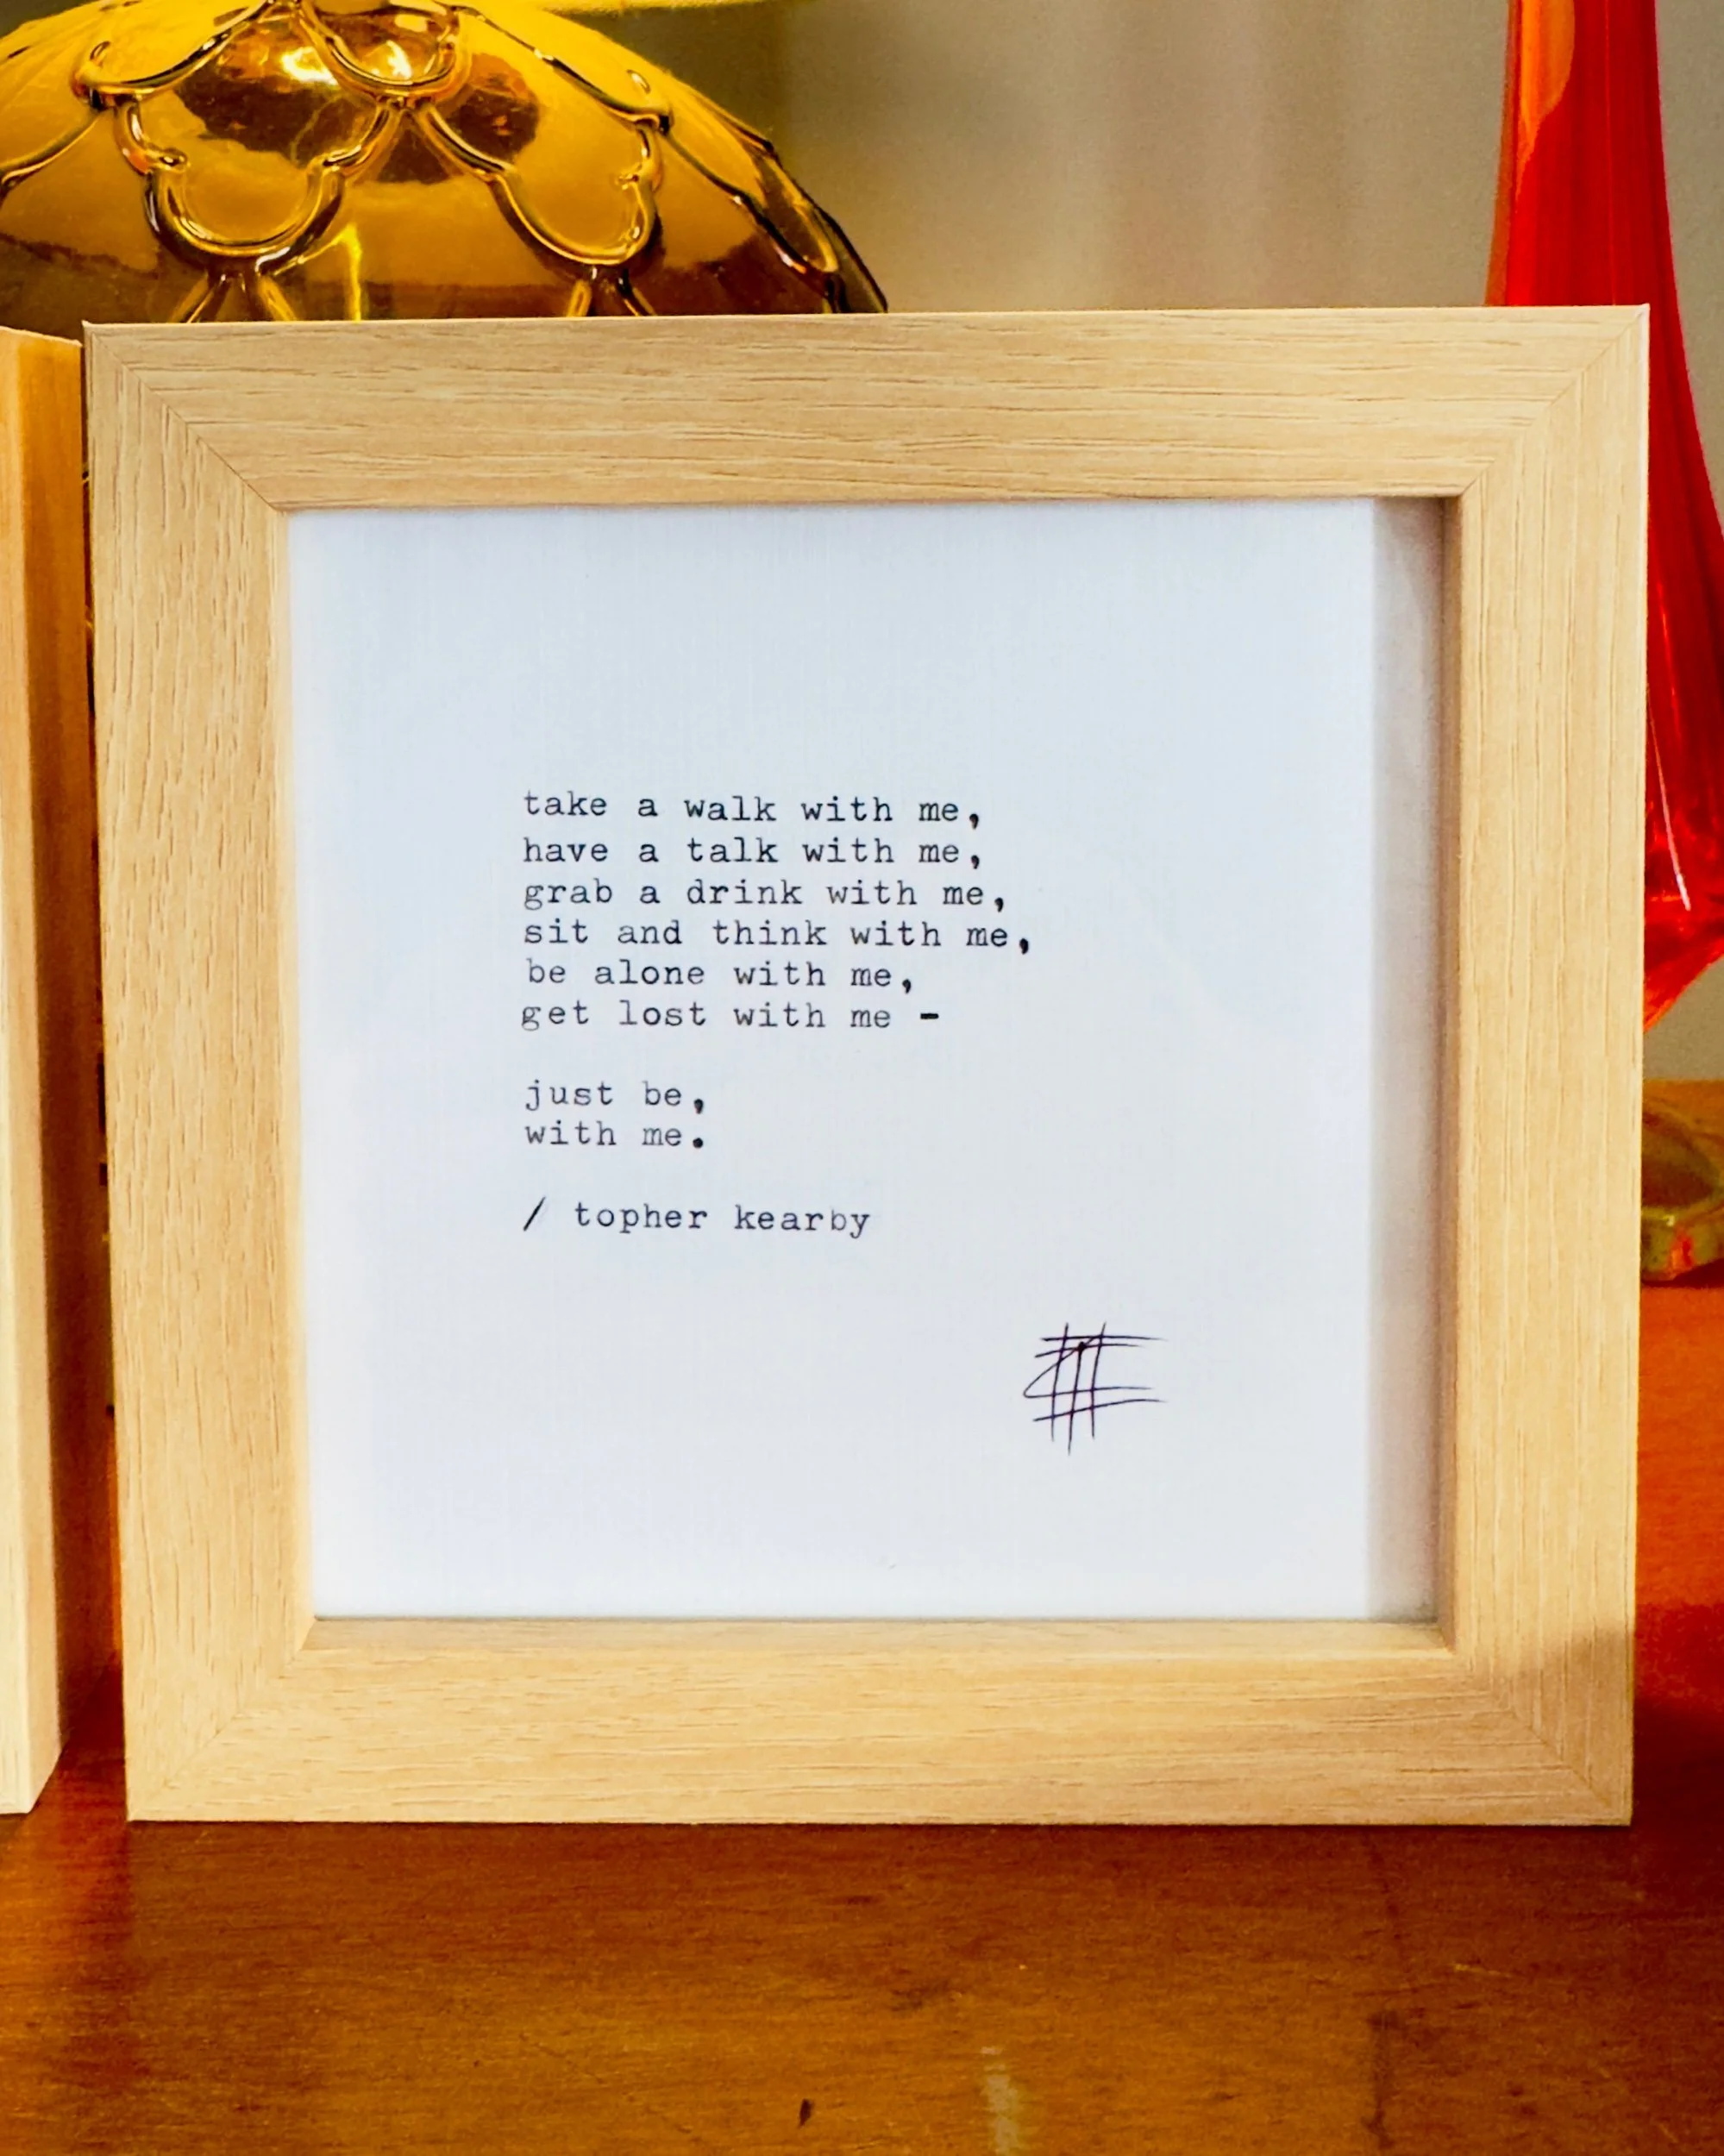 take a walk with me,
have a talk with me,
grab a drink with me,
sit and think with me,
be alone with me,
get lost with me -
just be,
with me.
/ topher kearby